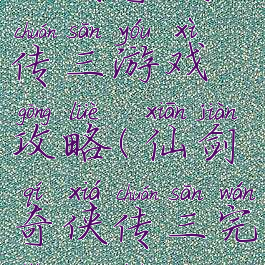 chuán sān yóu xì
传三游戏
gōng lüè xiān jiàn
攻略(仙剑
qí xiá chuán sān wán
奇侠传三完